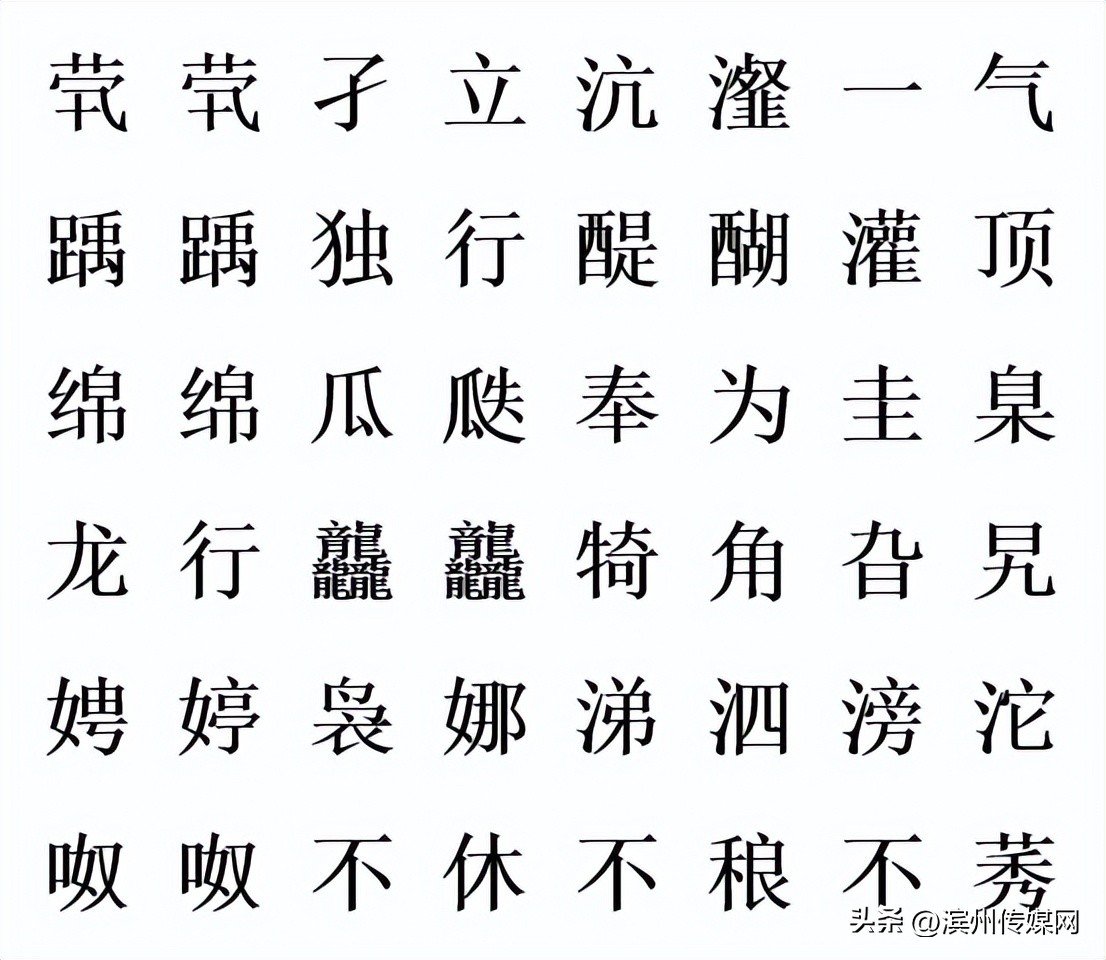 茕 茕 孑 立 沆 瀣 一 气
踽 踽 独 行 醍 醐 灌 顶
绵 绵 瓜 瓞 奉 为 圭 臬
龙 行 龘 龘 犄 角 旮 旯
娉 婷 袅 娜 涕 泗 滂 沱
呶 呶 不 休 不 稂 不 莠
头条 @滨州传媒网